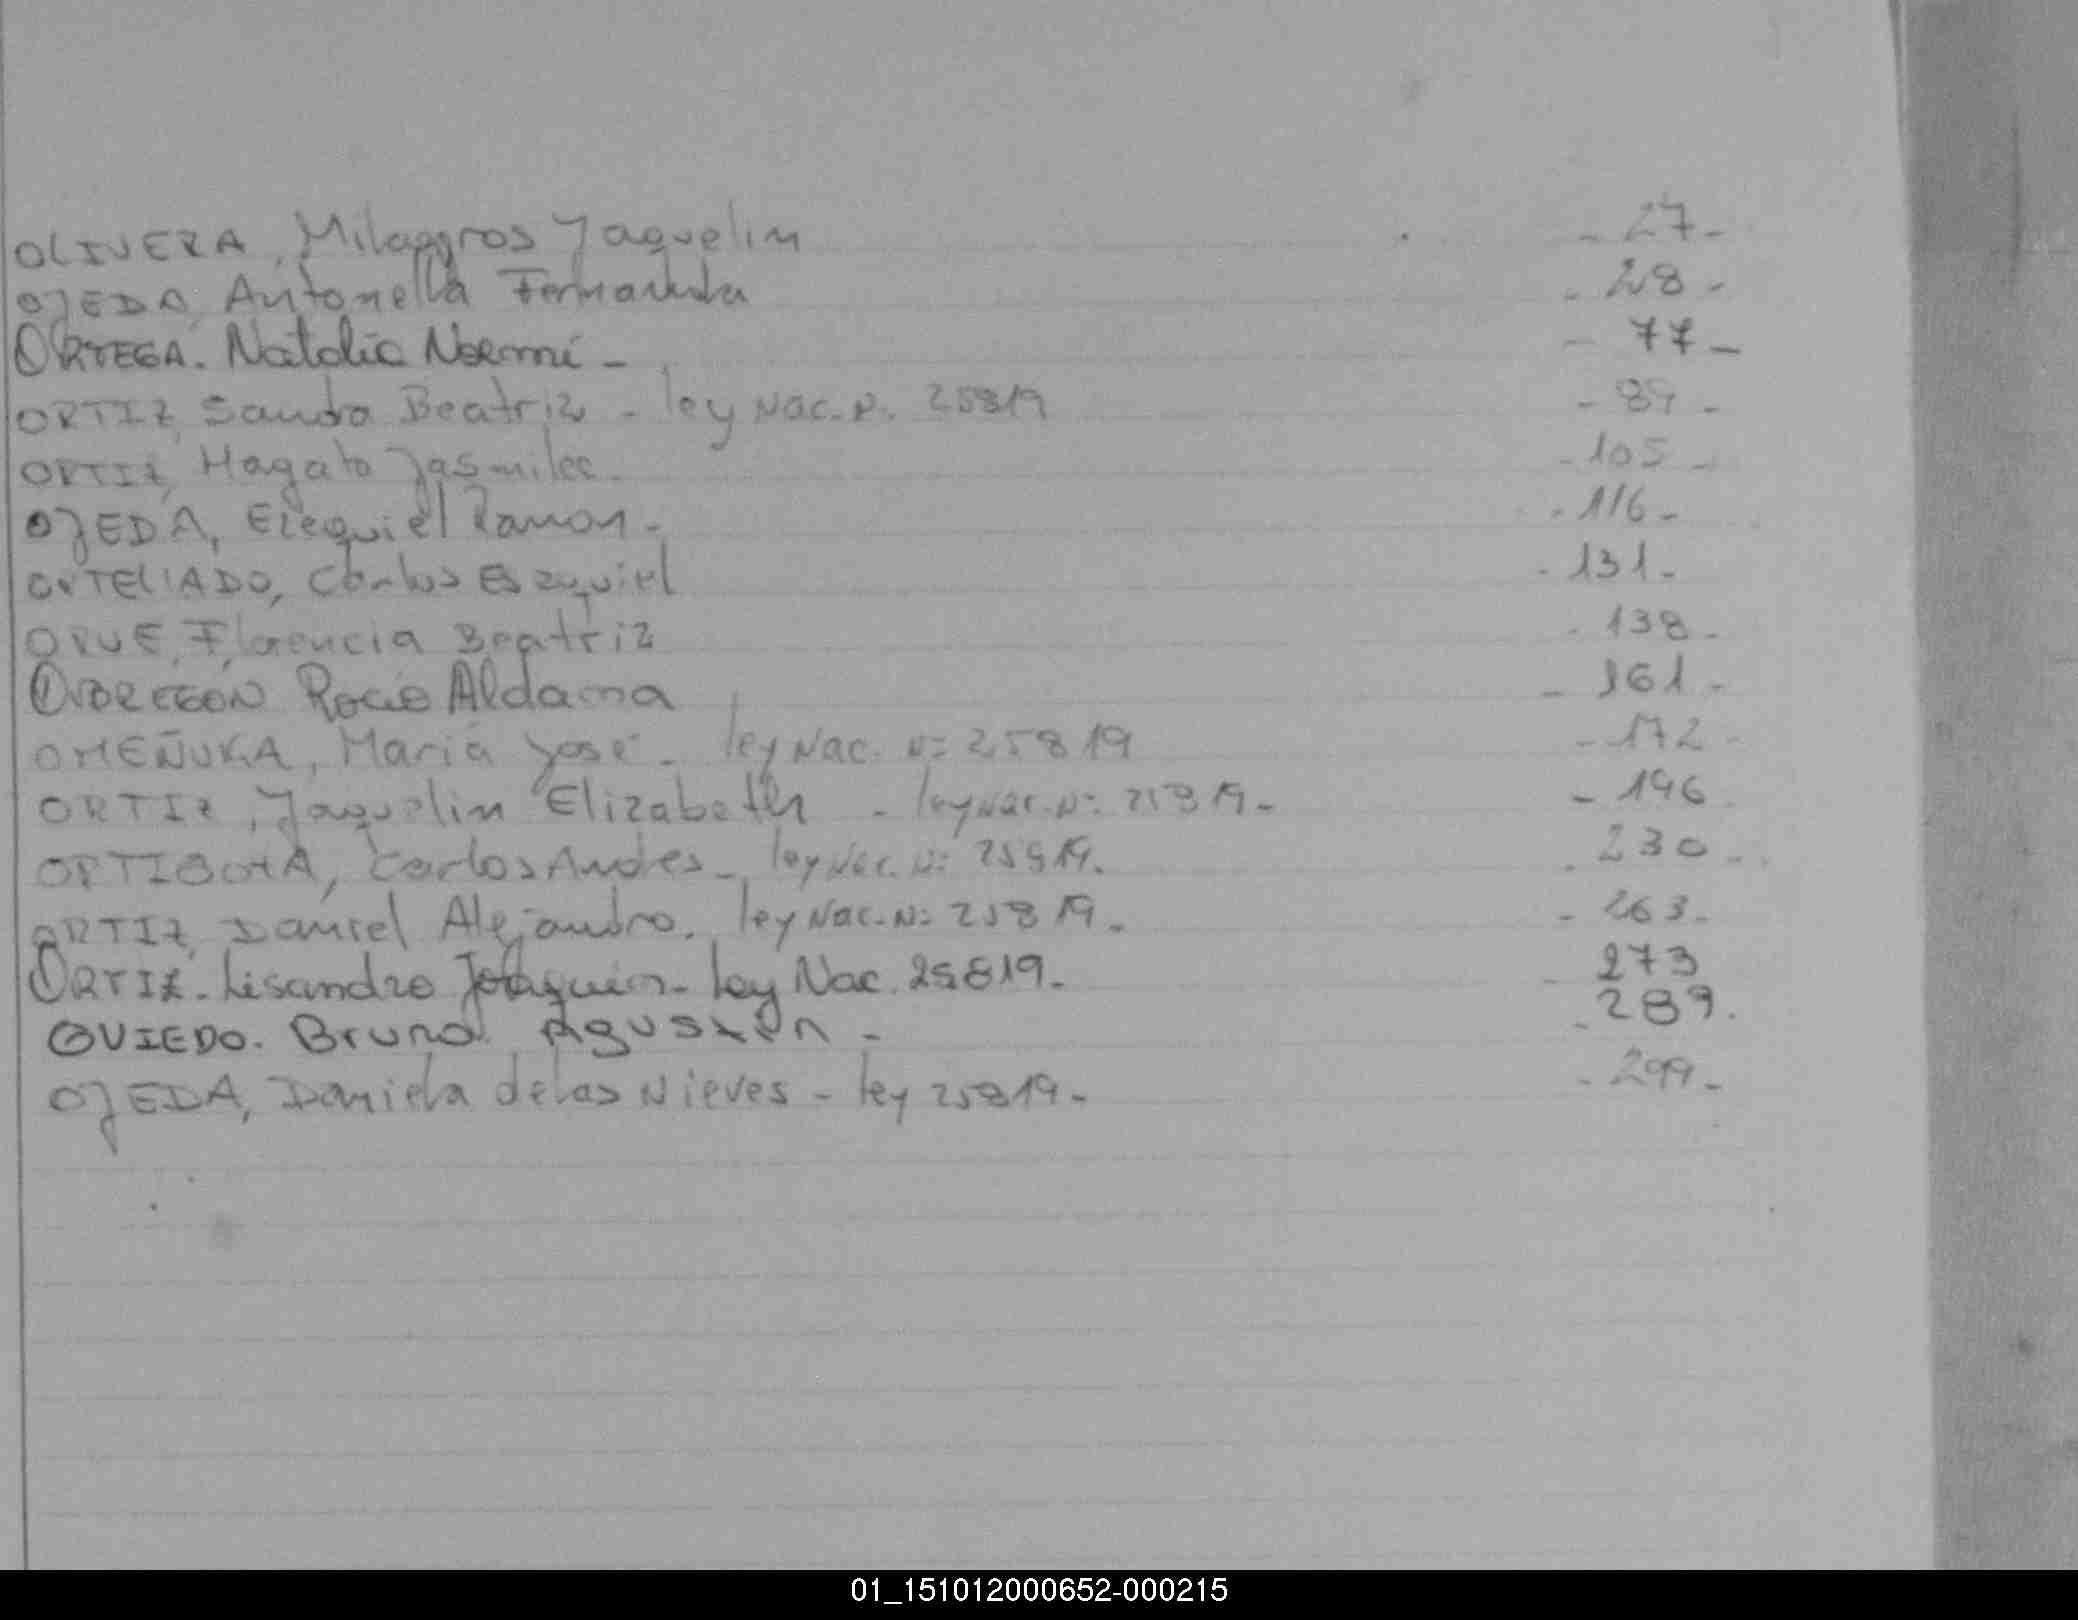 OLIVERA, Milagros Jaquelin - 27-
OJEDA, Antonella Fernanda - 28-
ORTEGA. Natalia Noemí - - 77-
ORTIZ, Sandra Beatriz - ley Nac. N. 25819 - 89-
ORTIZ, Magalo Jasmilec - 105-
OJEDA, Ezequiel Ramon - - 116-
ORTELLADO, Carlos Esequiel - 131-
ORUE, Florencia Beatriz - 138-
OBREGÓN Rocío Aldana - 161-
OMEÑUKA, María José - ley Nac. N: 25819 - 172-
ORTIZ, Jaquelin Elizabeth - ley Nac. N: 25819 - - 196
Carlos Andres - ley Nac. N: 25819. - 230-
ORTIZ, Daniel Alejandro. ley Nac. N: 25819. - 263-
ORTIZ. Lisandro Joaquin - ley Nac. 25819 - - 273
OVIEDO. Bruno Agustín - - 289.
OJEDA, Daniela de las Nieves - ley 25819 - - 299-
01_151012000652-000215